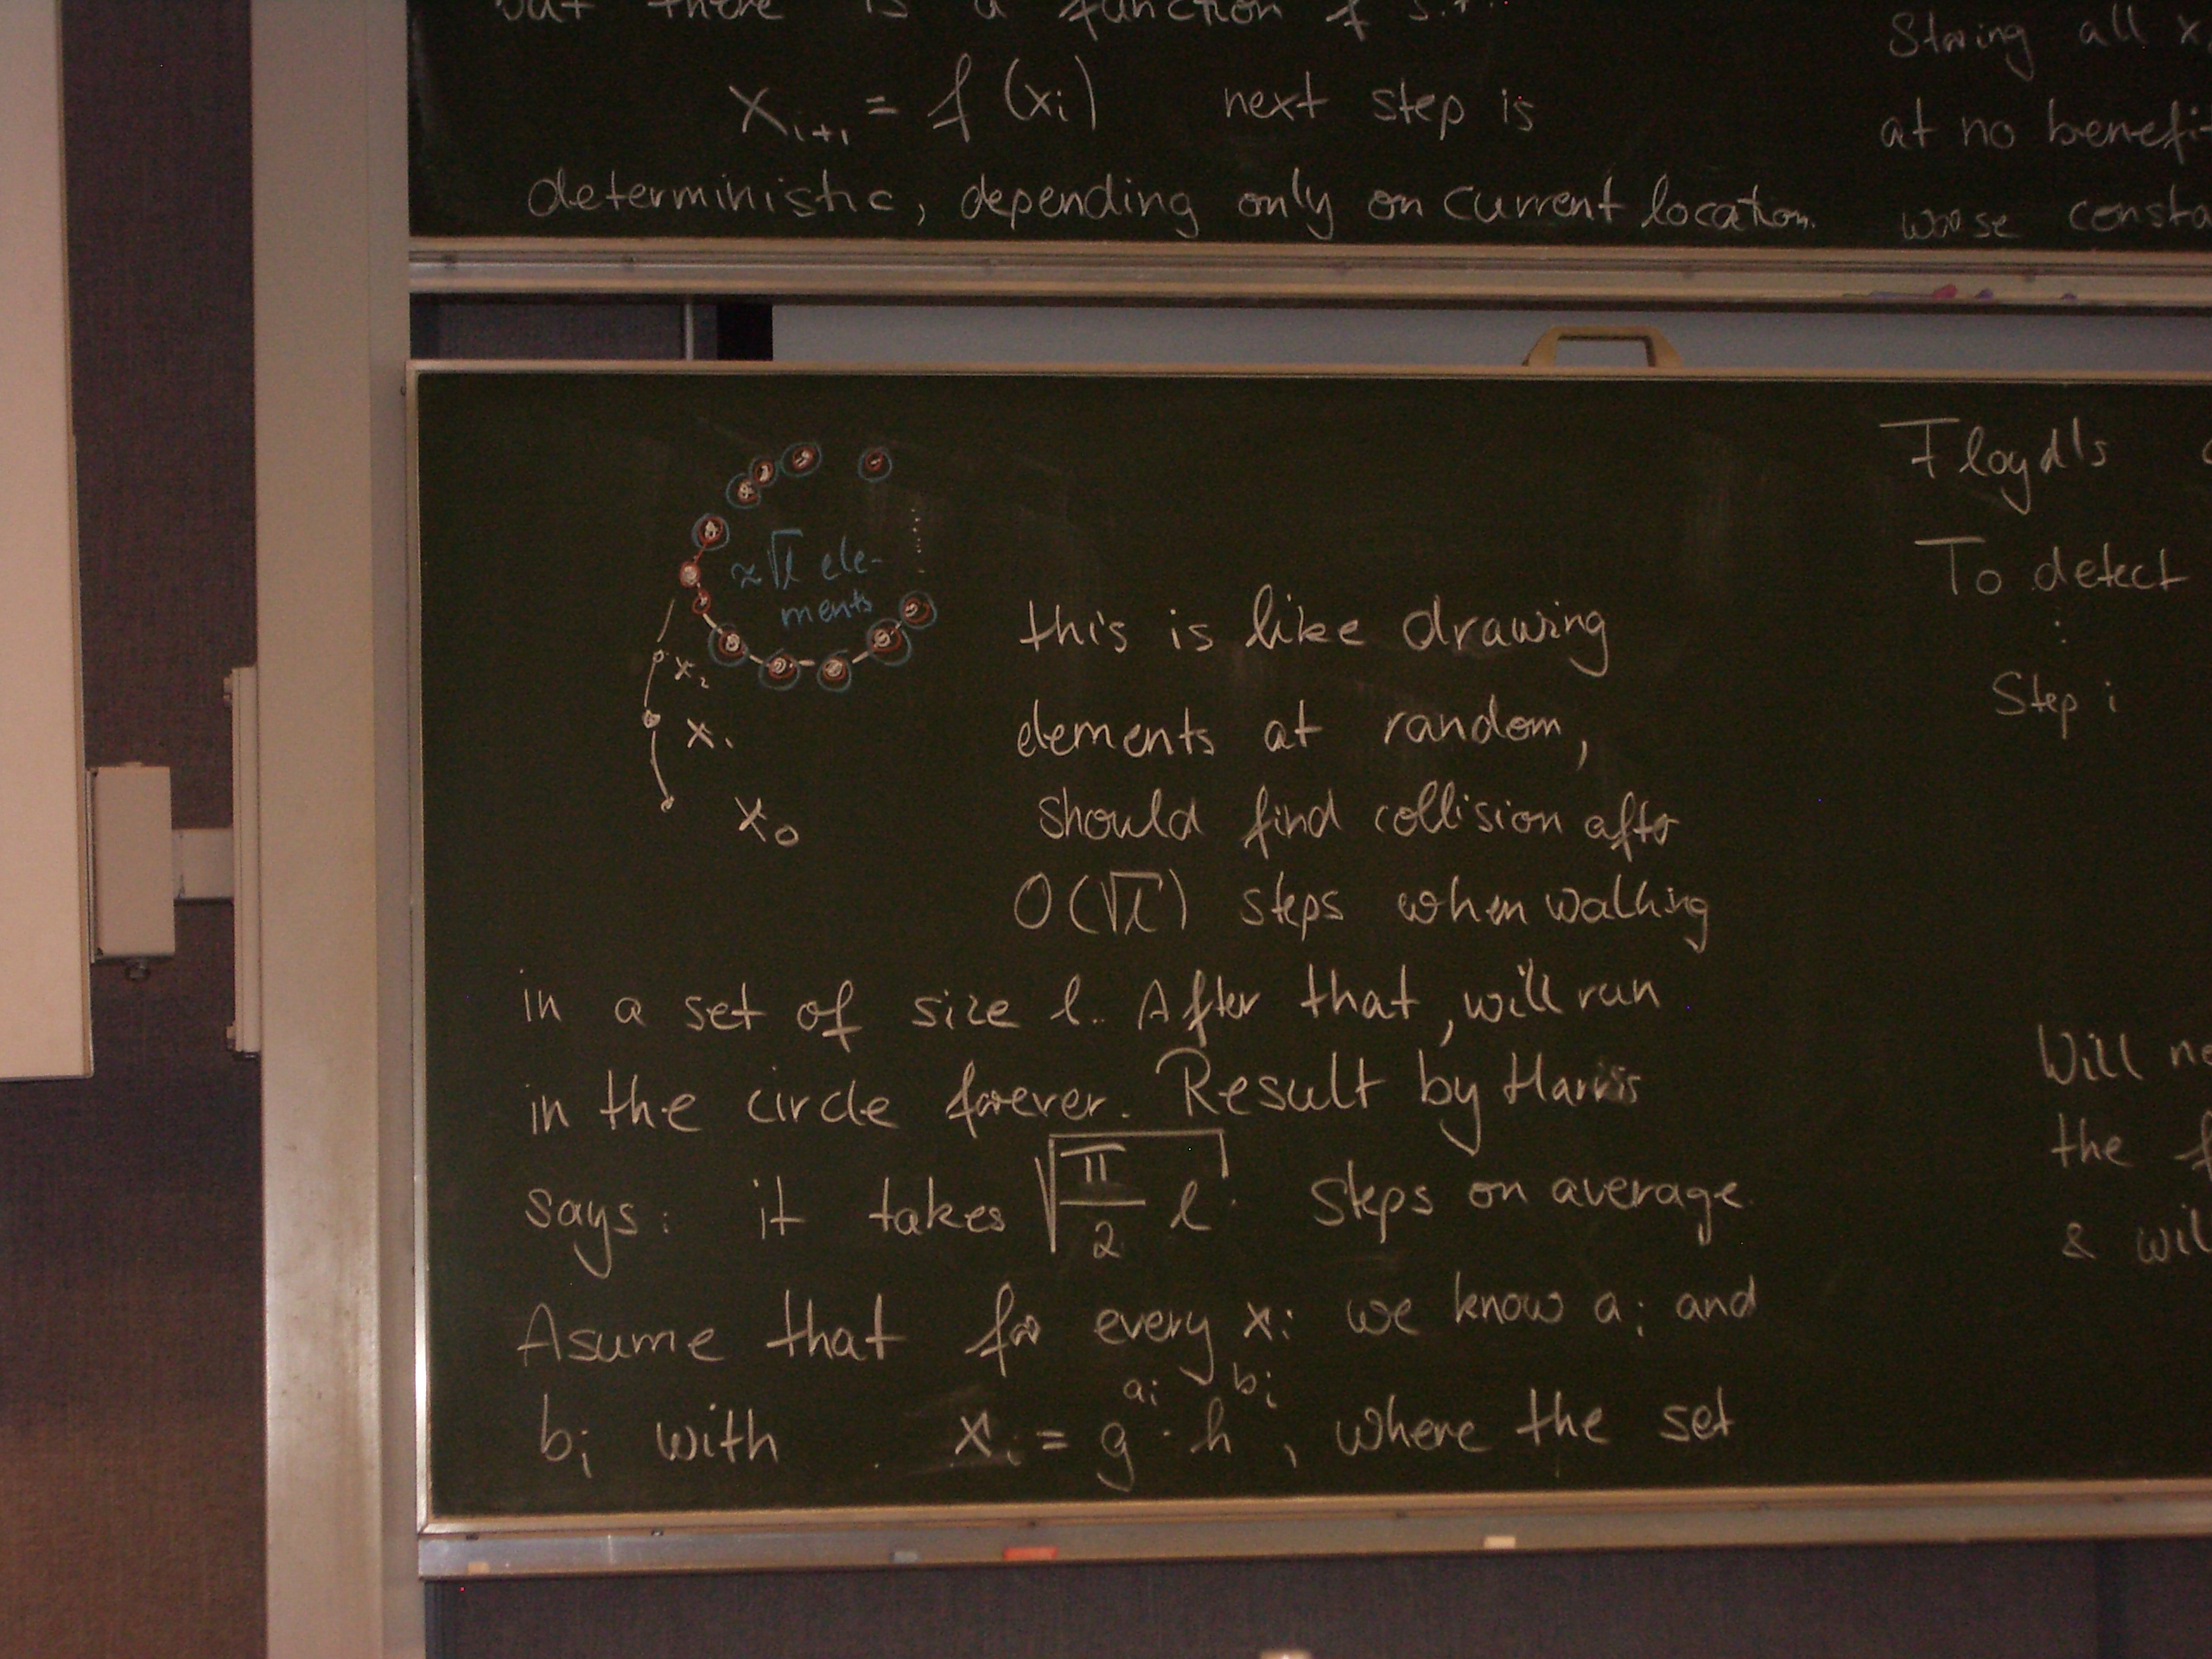 but there is a function f s.t.
X_{i+1} = f(x_i) next step is
deterministic, depending only on current location.
Storing all x
at no benefi
worse consta
≈√l ele-
ments
x_2
x_1
x_0
this is like drawing
elements at random,
should find collision after
O(√l) steps when walking
in a set of size l. After that, will run
in the circle forever. Result by Harris
says: it takes √(π/2 l) steps on average.
Asume that for every x_i we know a_i and
b_i with x_i = g^{a_i} · h^{b_i}, where the set
Floyd's
To detect
⋮
Step i
Will
the
& wil